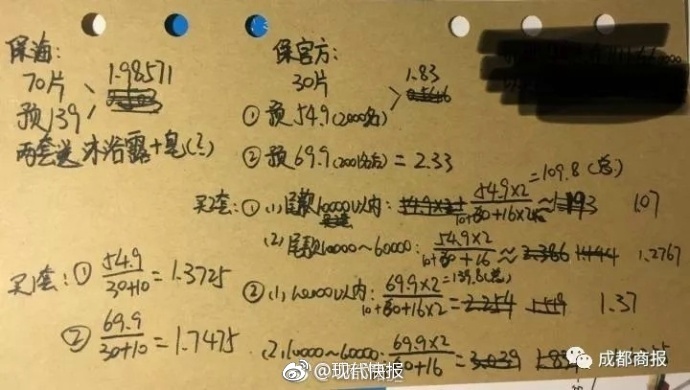 保海:
70片
1.98571
预139
两套送沐浴露+皂(?)
保官方:
30片
1.83
① 预54.9(2000名)
② 预69.9(2001名后)=2.33
买2套: ① (1) 尾款10000以内: 54.9×2=109.8(总)
10+30+16×2 ≈ 1.07
(2) 尾款10000~60000: 54.9×2
10+30+16 ≈ 1.2767
买1套: ① 54.9
30+10 = 1.3725
② 69.9
30+10 = 1.7475
② (1) 10000以内: 69.9×2=139.8(总)
10+30+16×2 = 1.37
(2) 10000~60000: 69.9×2
60+16 =
@现代快报
成都商报